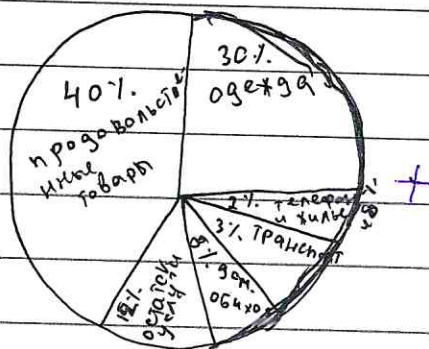 40%.
продовольстве
нные
товары
30%.
одежда
2% телефон
и жилье
3% транспорт
8% дом.
обихо
12%.
остатск
услуги